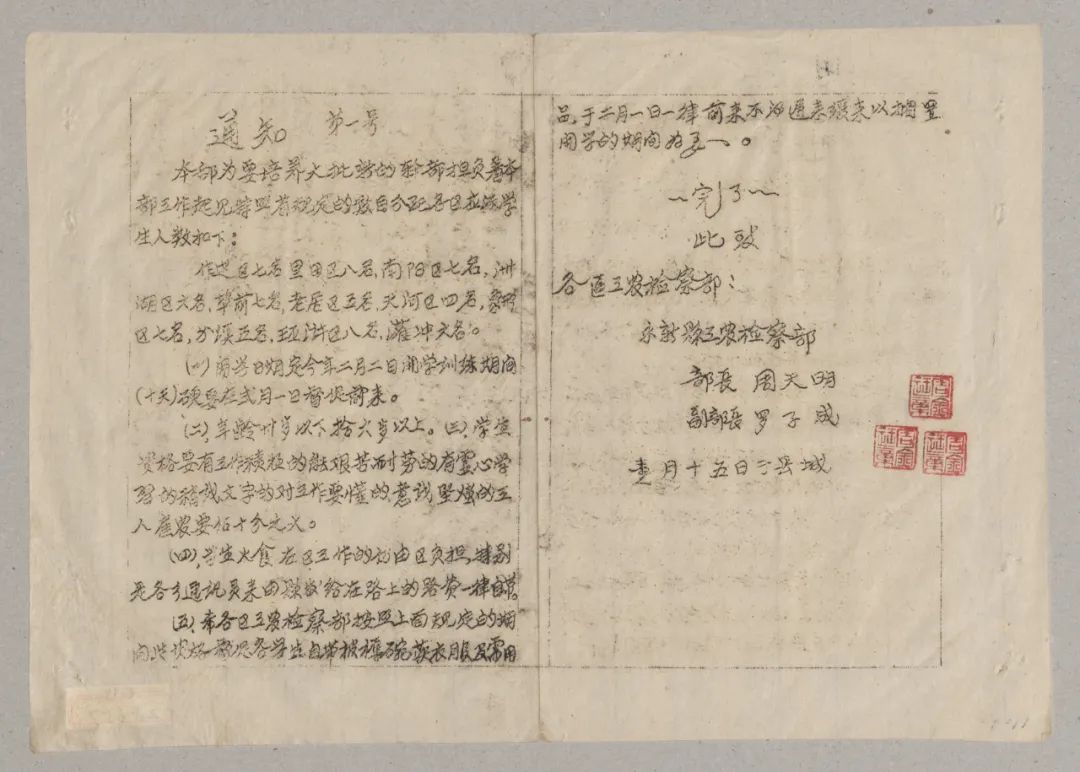 通知 第一号
本部为要培养大批新的干部担负着本
部工作起见特照着规定的数目分配各区应派学
生人数如下：
区七名里田区八名，南阳区七名，洲
湖区六名，草前七名，老居区五名，天河区四名，
区七名，分溪五名，八名，潞冲六名。
(一)开学日期定今年二月二日开学训练期间
(十天)硬要在式月一日督促前来。
(二)，年龄廿岁以下拾六岁以上。(三)，学生
资格要有工作积极的能艰苦耐劳的有虚心学
习的稍识文字的对工作要懂的，意识坚强的工
人雇农要佔十分之六。
(四)，学生火食在区工作的的由区负担，特别
是各乡通讯员来的在路上的路费一律自带。
(五)，希各区工农检察部按照上面规定的期
间此状格各学生自带被褥碗筷衣服及需用
品，于二月一日一律前来不得迟来缓来以
开学的期间为要一。
～完了～
此致
各区工农检察部：
永新县工农检察部
部长 周天明
副部长 罗子成
壹月十五日于县城